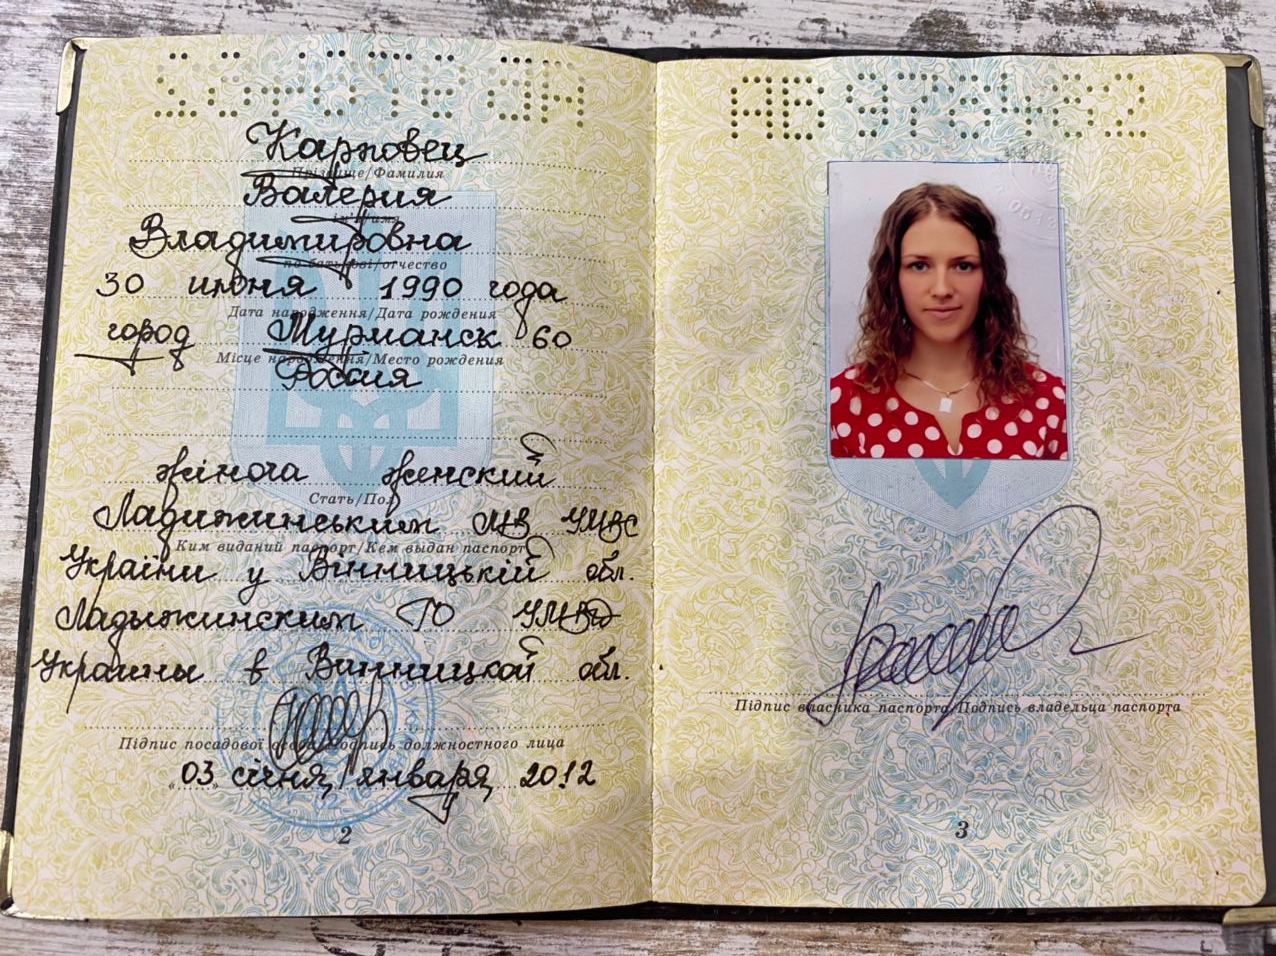 Карповец
Прізвище/Фамилия
Валерия
ім'я/имя
Владимировна
по батькові/отчество
30 июня 1990 года
Дата народження/Дата рождения
город Мурманск 60
Місце народження/Место рождения
Россия
жіноча женский
Стать/Пол
Ладижинським МВ УМВС
Ким виданий паспорт/Кем выдан паспорт
України у Вінницькій обл.
Ладыжинским ГО УМВД
Украины в Винницкой обл.
Підпис посадової особи/Подпись должностного лица
"03" січня/января 2012
2
Підпис власника паспорта/Подпись владельца паспорта
3